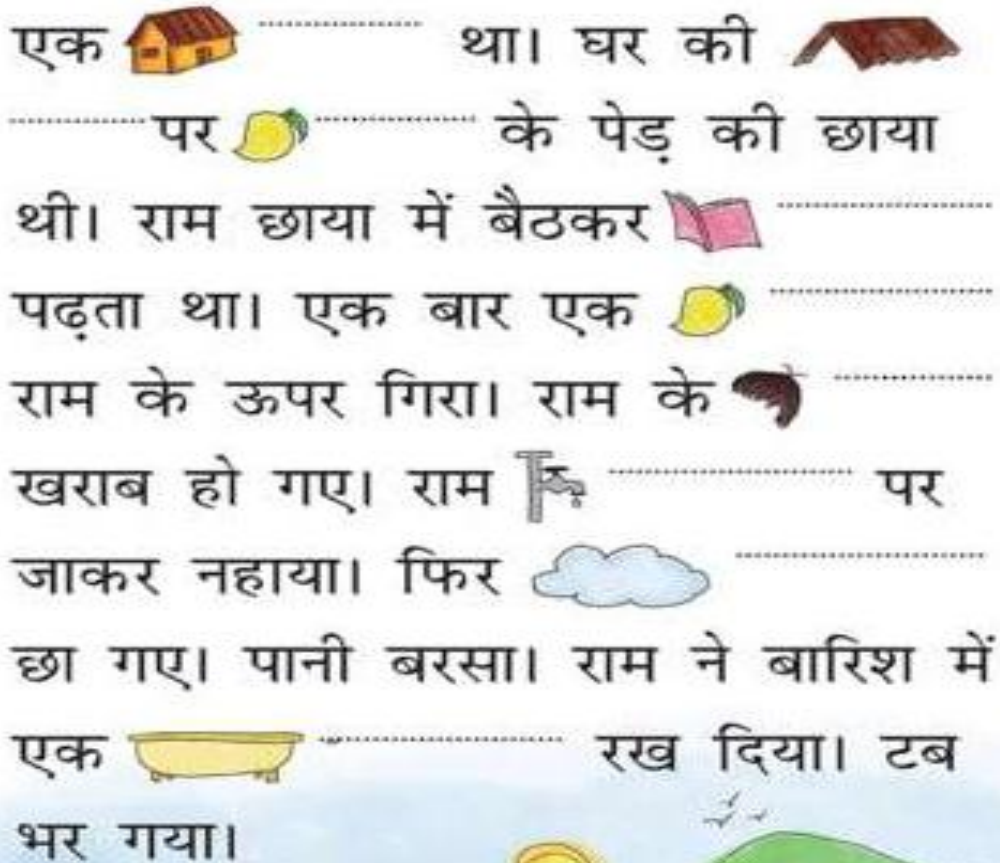 एक ........................ था। घर की
.................... पर ........................ के पेड़ की छाया
थी। राम छाया में बैठकर ................................
पढ़ता था। एक बार एक ................................
राम के ऊपर गिरा। राम के ........................
खराब हो गए। राम .................................... पर
जाकर नहाया। फिर ....................................
छा गए। पानी बरसा। राम ने बारिश में
एक .................................... रख दिया। टब
भर गया।